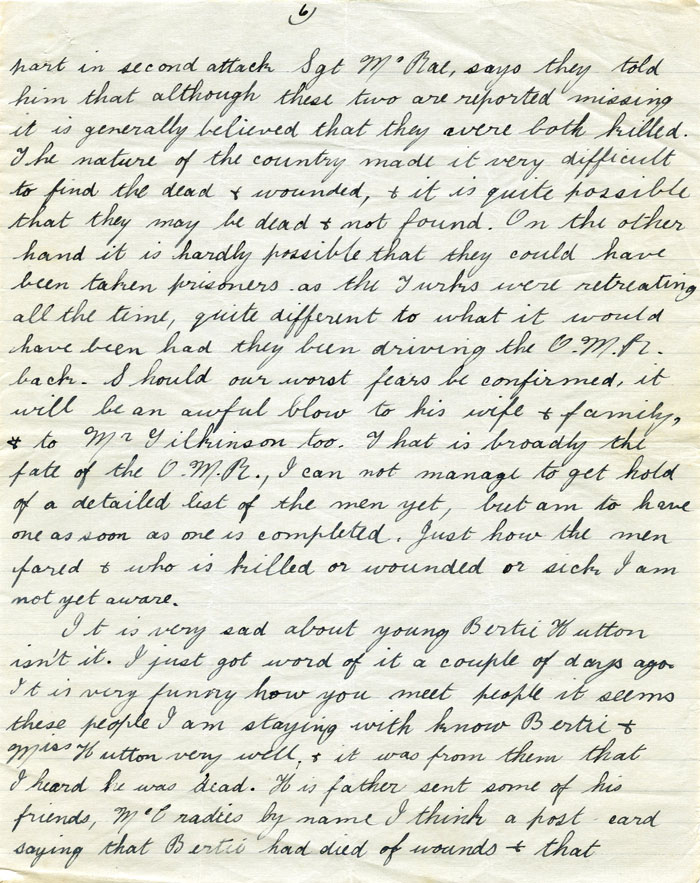 6
part in second attack Sgt McRae, says they told
him that although these two are reported missing
it is generally believed that they were both killed.
The nature of the country made it very difficult
to find the dead & wounded, & it is quite possible
that they may be dead & not found. On the other
hand it is hardly possible that they could have
been taken prisoners as the Turks were retreating
all the time, quite different to what it would
have been had they been driving the O.M.R.
back. Should our worst fears be confirmed, it
will be an awful blow to his wife & family,
& to Mr Gilkinson too. That is broadly the
fate of the O.M.R., I can not manage to get hold
of a detailed list of the men yet, but am to have
one as soon as one is completed. Just how the men
fared & who is killed or wounded or sick I am
not yet aware.
It is very sad about young Bertie Hutton
isn't it. I just got word of it a couple of days ago.
It is very funny how you meet people it seems
these people I am staying with know Bertie &
Miss Hutton very well, & it was from them that
I heard he was dead. His father sent some of his
friends, McCradies by name I think a post card
saying that Bertie had died of wounds & that